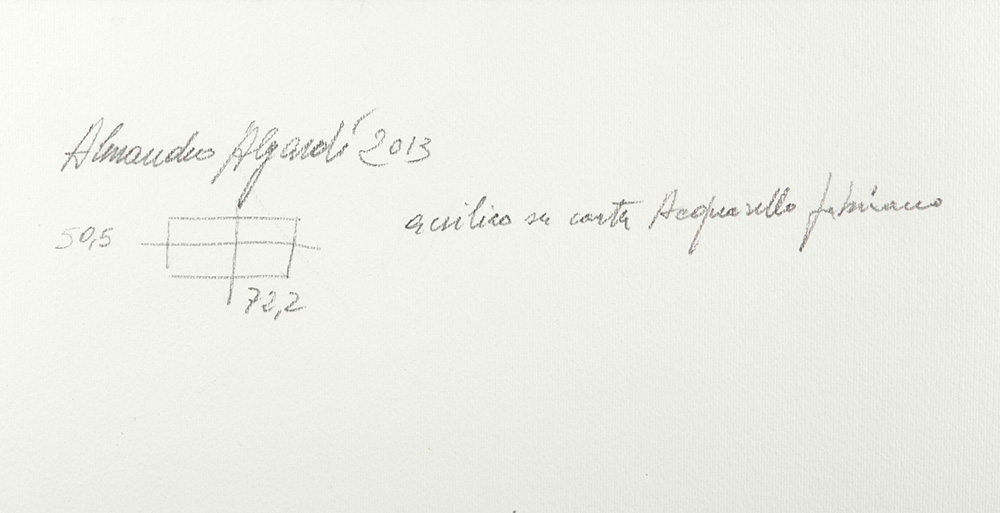 Alessandro Algardi 2013
acrilico su carta Acquarello fabriano
50,5
72,2